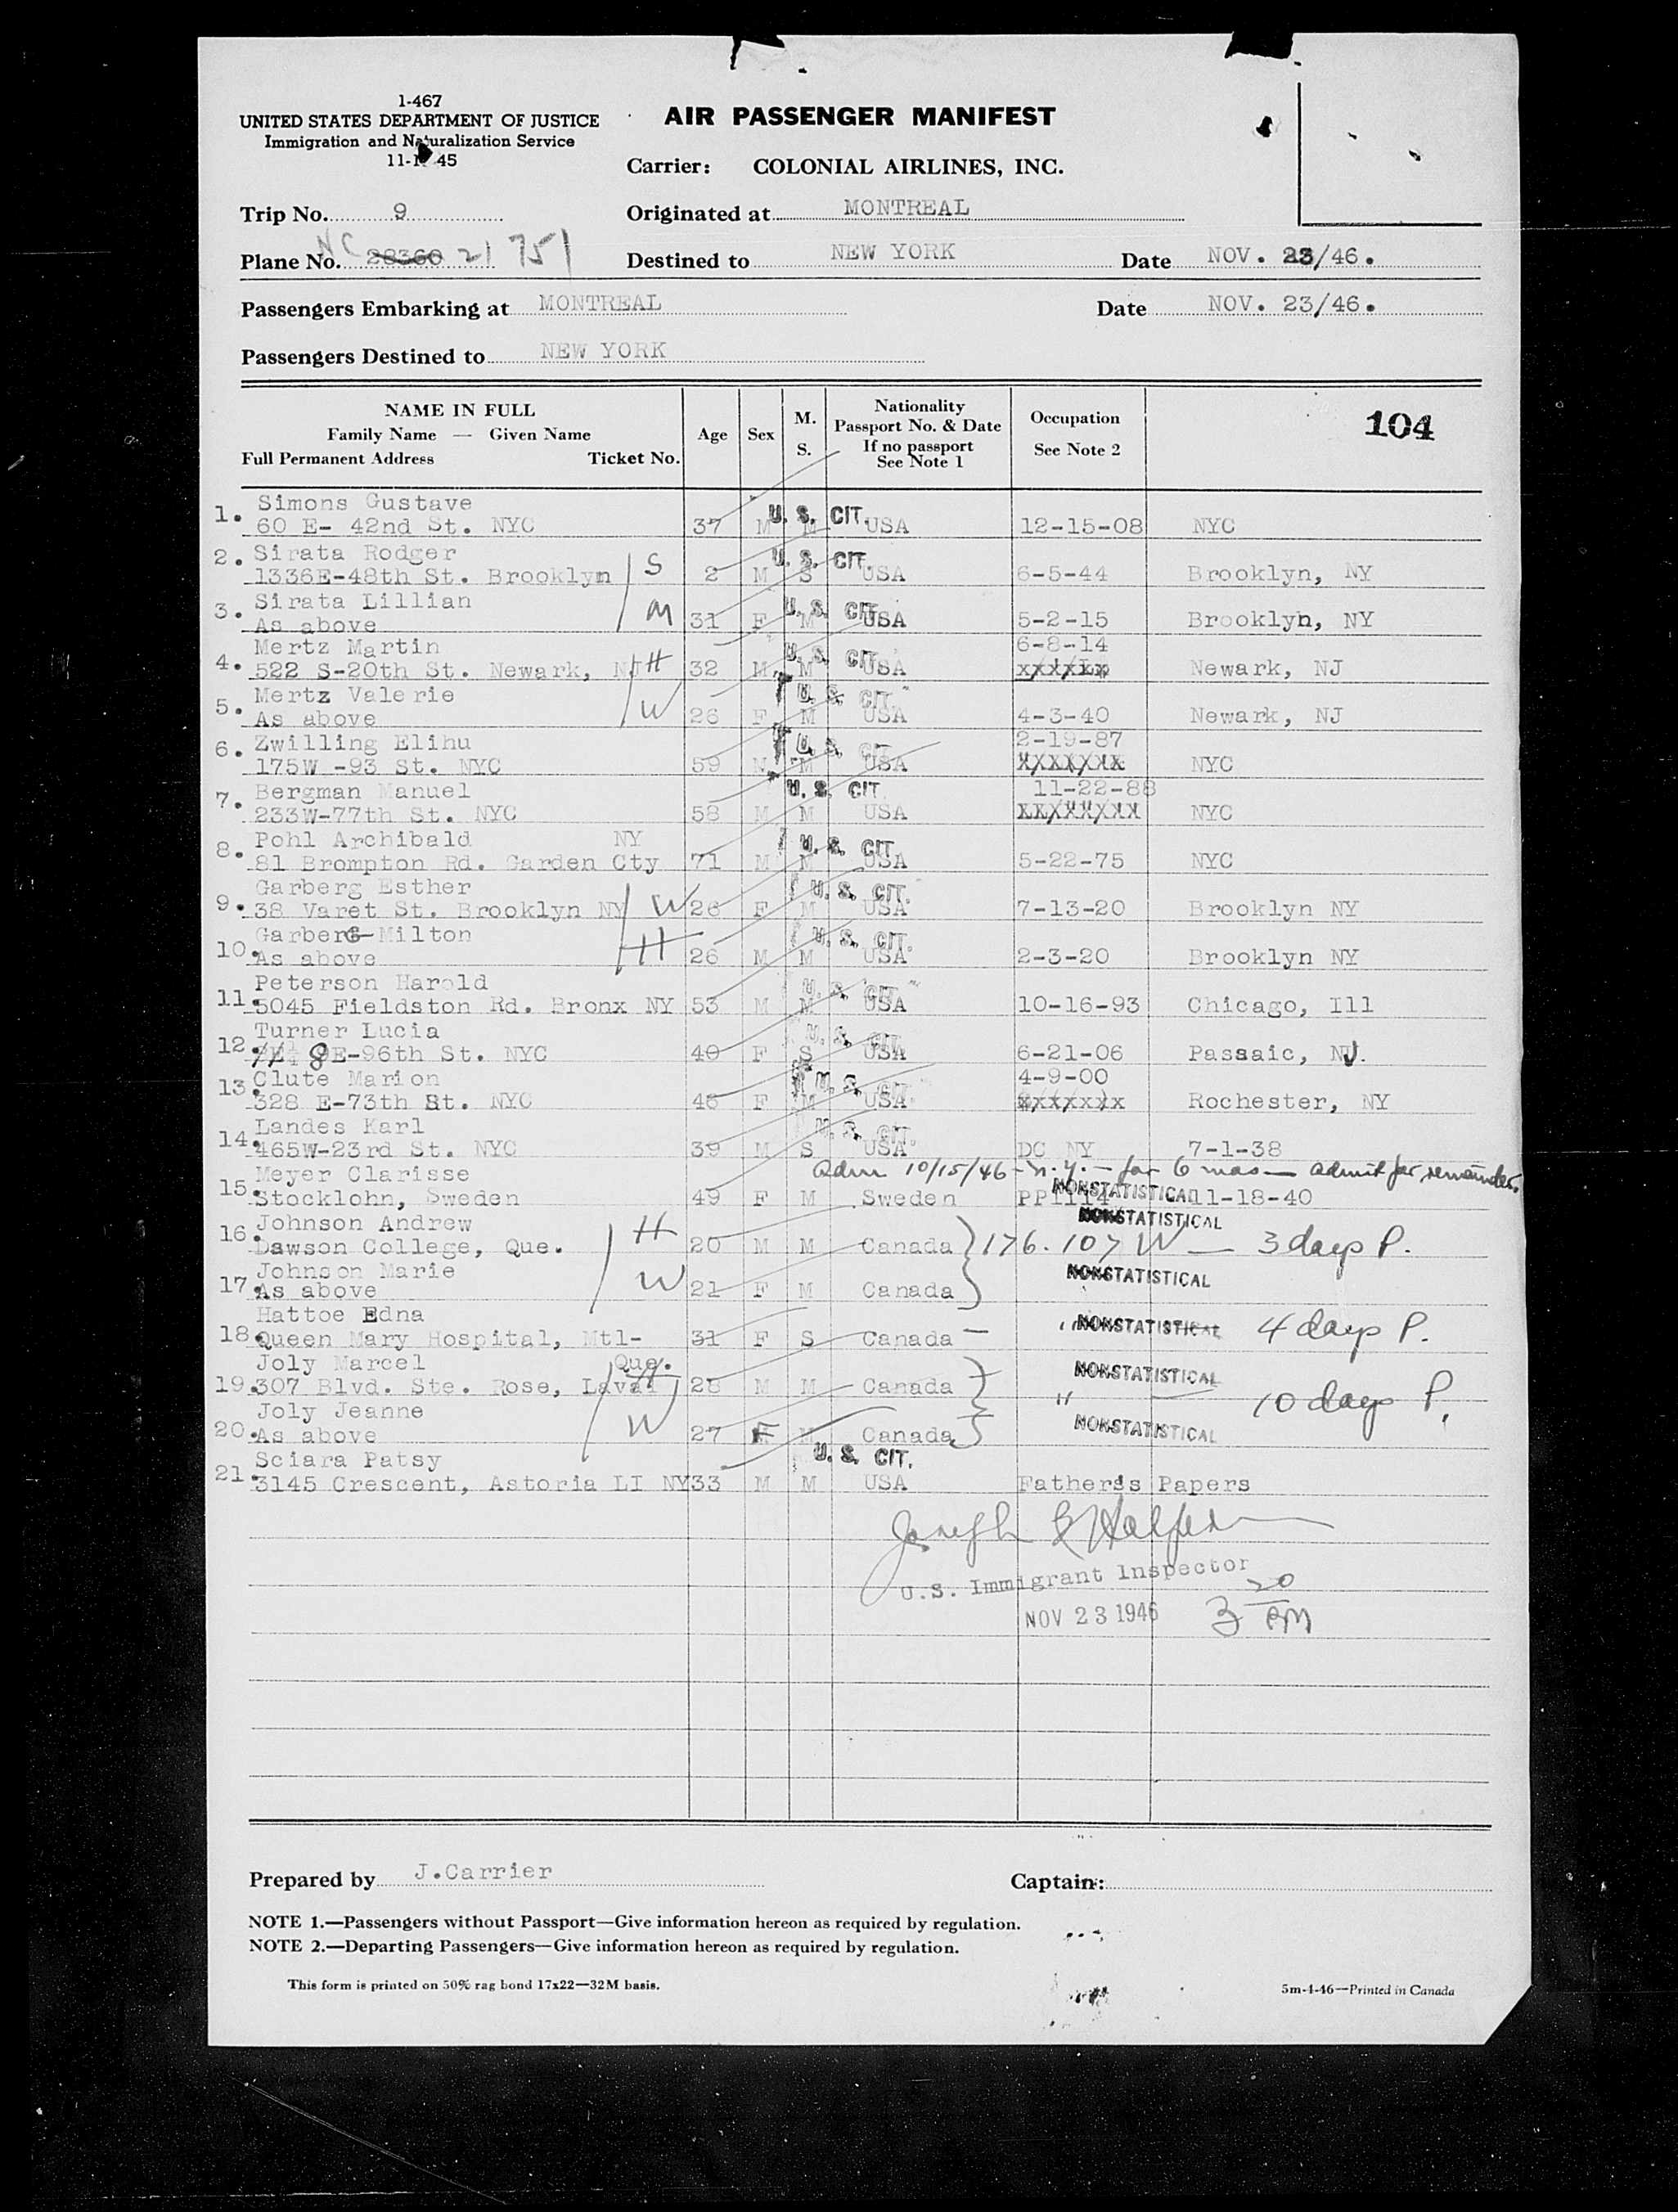 1-467
UNITED STATES DEPARTMENT OF JUSTICE
Immigration and Naturalization Service
11-1 45
AIR PASSENGER MANIFEST
Carrier: COLONIAL AIRLINES, INC.
Trip No. 9
Originated at MONTREAL
Plane No. NC 28360 21751
Destined to NEW YORK
Date NOV. 23/46.
Passengers Embarking at MONTREAL
Date NOV. 23/46.
Passengers Destined to NEW YORK
NAME IN FULL
Family Name — Given Name
Full Permanent Address Ticket No.
Age
Sex
M. S.
Nationality
Passport No. & Date
If no passport
See Note 1
Occupation
See Note 2
104
1. Simons Gustave
60 E- 42nd St. NYC 37 M M U. S. CIT. USA 12-15-08 NYC
2. Sirata Rodger
1336E-48th St. Brooklyn S 2 M S U. S. CIT. USA 6-5-44 Brooklyn, NY
3. Sirata Lillian
As above M 31 F M U. S. CIT. USA 5-2-15 Brooklyn, NY
4. Mertz Martin 6-8-14
522 S-20th St. Newark, NJ H 32 M M U. S. CIT. USA Newark, NJ
5. Mertz Valerie
As above W 26 F M U. S. CIT. USA 4-3-40 Newark, NJ
6. Zwilling Elihu 2-19-87
175W -93 St. NYC 59 M M U. S. CIT. USA xxxxxxx NYC
7. Bergman Manuel 11-22-88
233W-77th St. NYC 58 M M U. S. CIT. USA NYC
8. Pohl Archibald NY
81 Brompton Rd. Garden Cty 71 M M U. S. CIT. USA 5-22-75 NYC
9. Garberg Esther
38 Varet St. Brooklyn NY W 26 F M U. S. CIT. USA 7-13-20 Brooklyn NY
10. Garberg Milton
As above H 26 M M U. S. CIT. USA 2-3-20 Brooklyn NY
11. Peterson Harold
5045 Fieldston Rd. Bronx NY 53 M M U. S. CIT. USA 10-16-93 Chicago, Ill
12. Turner Lucia
8E-96th St. NYC 40 F S U. S. CIT. USA 6-21-06 Passaic, NJ.
13. Clute Marion 4-9-00
328 E-73th St. NYC 46 F M U. S. CIT. USA xxxxxxx Rochester, NY
14. Landes Karl
465W-23rd St. NYC 39 M S U. S. CIT. USA DC NY 7-1-38
Adm 10/15/46 - N.Y. - for 6 mos - admit for remainder.
15. Meyer Clarisse
Stocklohn, Sweden 49 F M Sweden PP1114 NONSTATISTICAL 11-18-40
16. Johnson Andrew NONSTATISTICAL
Dawson College, Que. H 20 M M Canada 176.107 W — 3 days P.
17. Johnson Marie NONSTATISTICAL
As above W 21 F M Canada
18. Hattoe Edna
Queen Mary Hospital, Mtl- 31 F S Canada — " NONSTATISTICAL 4 days P.
19. Joly Marcel Que. NONSTATISTICAL
307 Blvd. Ste. Rose, Laval H 28 M M Canada " — 10 days P.
20. Joly Jeanne NONSTATISTICAL
As above W 27 F M Canada
21. Sciara Patsy U. S. CIT.
3145 Crescent, Astoria LI NY 33 M M USA Father's Papers
U.S. Immigrant Inspector
NOV 23 1946 3 20 PM
Prepared by J.Carrier
Captain:
NOTE 1.—Passengers without Passport—Give information hereon as required by regulation.
NOTE 2.—Departing Passengers—Give information hereon as required by regulation.
This form is printed on 50% rag bond 17x22—32M basis.
5m-4-46—Printed in Canada